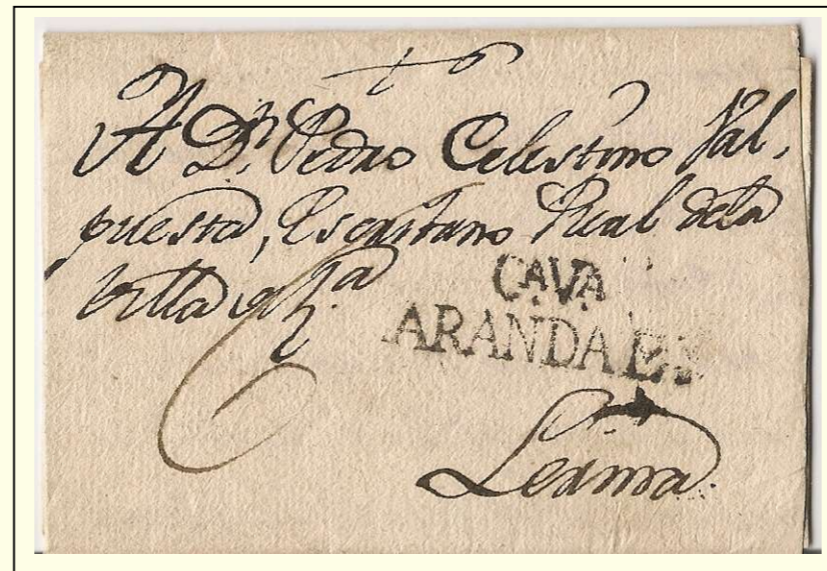 A Dn. Pedro Celestino Val,
puesta, Escrivano Real dela
Villa de
CAVA
ARANDA
Lerma